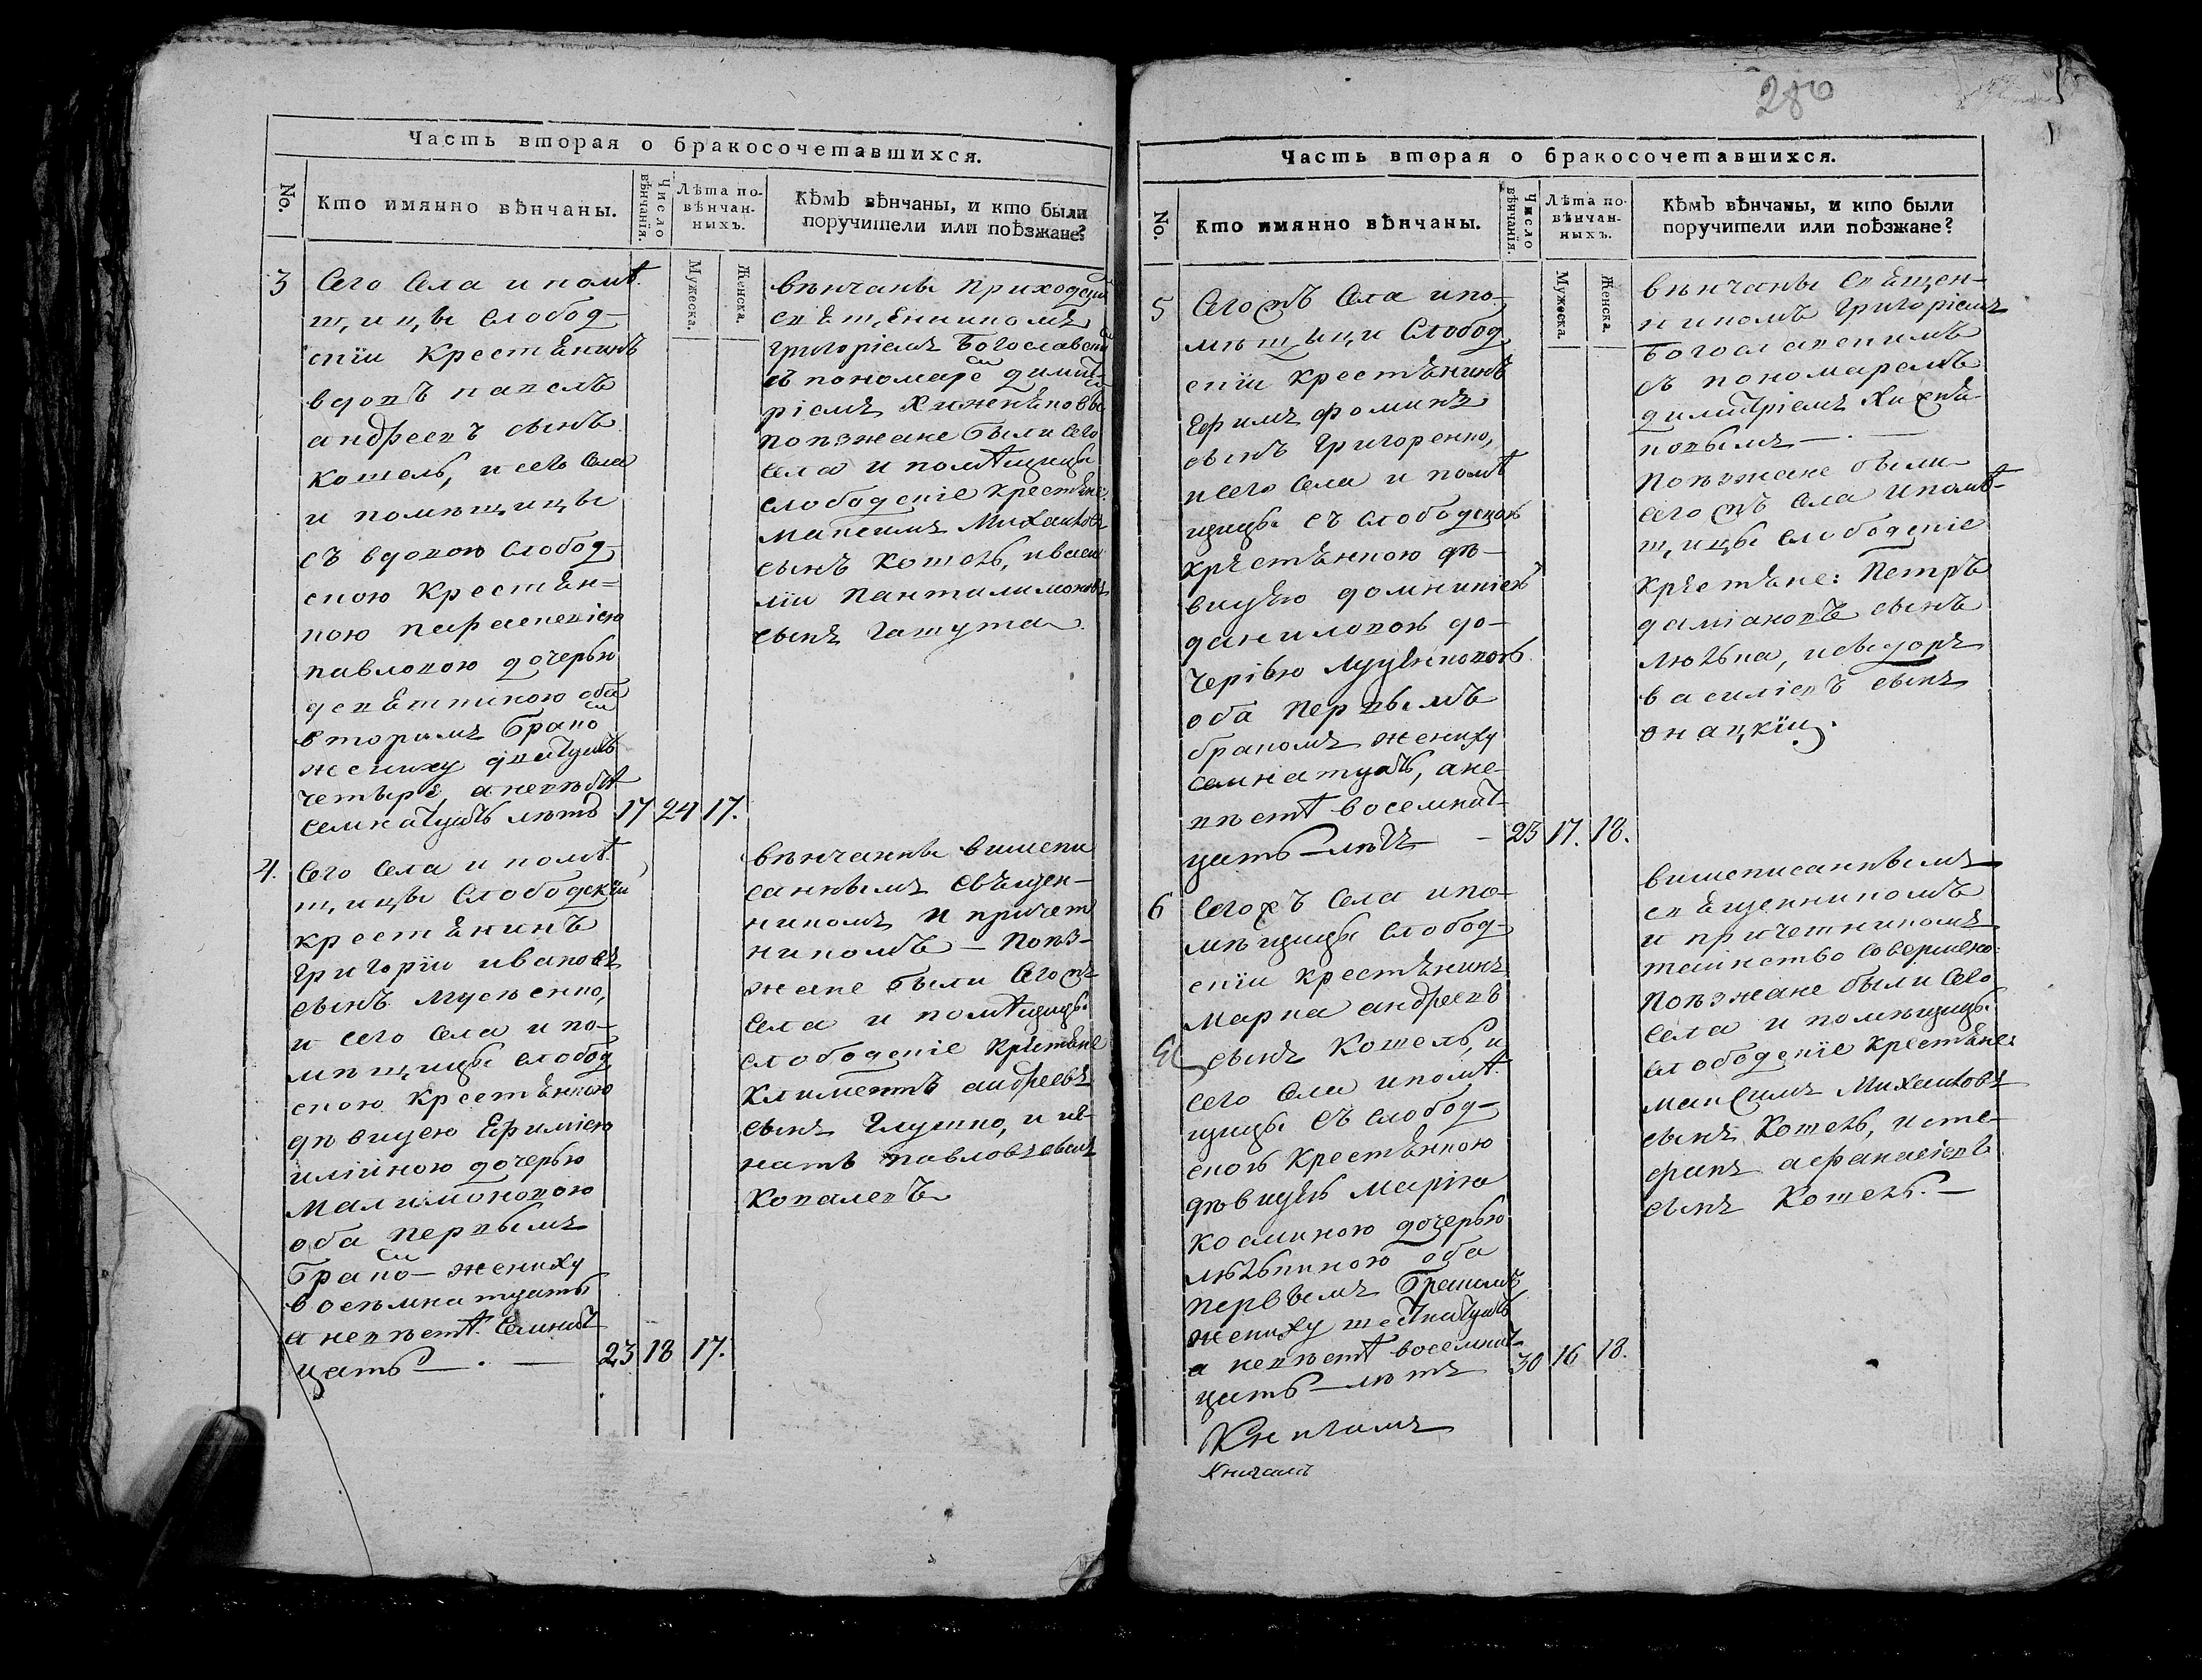 Часть вторая о бракосочетавшихся.
No.
Кто имянно вѣнчаны.
Число вѣнчанія.
Лѣта по-
вѣнчан-
ныхъ.
Мужеска.
Женска.
Кѣмъ вѣнчаны, и кто были
поручители или поѣзжане?
3
Сего Села и помѣ
щицы слобод-
скїи Крестянинъ
вдовъ павелъ
андреевъ сынъ
Кошель, и сего Села
и помѣщицы
съ вдовою слобод-
скою Крестян=
кою параскевією
павловою дочерью
оба
вторимъ Брако
жениху
четыре, а невѣстѣ
семнатцать лѣтъ 17 24 17.
вѣнчаны приходски
священникомъ
григоріемъ Богословски
съ пономаре димит
ріемъ
поѣзжане были сего
села и помѣщицы
слободскіе крестяне
Максимъ Михайловъ
сынъ Кошель, и васи
лїи Пантилимоновъ
сынъ
4.
Сего Села и помѣ
щицы Слободскїи
крестянинъ
Григорїи ивановъ
сынъ Мусѣенко,
и сего Села и по-
мѣщицы слобод
скою Крестянкою
дѣвицею Ефимією
иллїною дочерью
Малимоновою
оба первымъ
Брако - жениху
восѣмнатцать
а невѣстѣ. Семнат
цать 23 18 17.
вѣнчанны вишепи
саннымъ свѣщен-
никомъ и причет
никомъ - Поѣз-
жане были сегожъ
Села и помѣщицы
слободскіе крестяне
Климентъ андреевъ
сынъ Глушко, и иг-
натъ павловъ сынъ
Ковалевъ
280
Часть вторая о бракосочетавшихся.
No.
Кто имянно вѣнчаны.
Число вѣнчанія.
Лѣта по-
вѣнчан-
ныхъ.
Мужеска.
Женска.
Кѣмъ вѣнчаны, и кто были
поручители или поѣзжане?
5
Сегожъ Села и по-
мѣщици Слобод
скїи крестянинъ
Ефимъ фоминъ
сынъ Григоренко,
и сего Села и помѣ
щицы съ слободскою
крестянкою дѣ-
вицею домникією
даниловою до-
черію Луценковою
оба Первымъ
бракомъ жениху
семнатцать, а не-
вѣстѣ восемнат-
цать лѣтъ - 23 17. 18.
вѣнчаны Священ-
никомъ григоріемъ
Богославскимъ
съ пономаремъ
димитріемъ
Поѣзжане были
сегожъ Села и помѣ-
щицы слободскіе
крестяне: Петръ
даміановъ сынъ
Люлька, и сидоръ
василієвъ сынъ
онацкїи.
6
Сегожъ Села и по-
мѣщицы слобод-
скїи крестянинъ
Марка андреевъ
сынъ Кошель, и
сего Села и помѣ
щицы съ слобод-
скою Крестянкою
дѣвицею Марією
Косминою дочерью
люлькиною оба
первымъ Бракомъ
жениху шестнатцать
а невѣстѣ восемнат-
цать лѣтъ 30 16 18.
вишеписаннымъ
священникомъ
и причетникомъ
таинство совершено:
Поѣзжане были Сего
Села и помѣщицы
слободскїе крестяне
Максимъ Михайловъ
сынъ Кошель, и сте-
фанъ афанасієвъ
сынъ Кошель. -